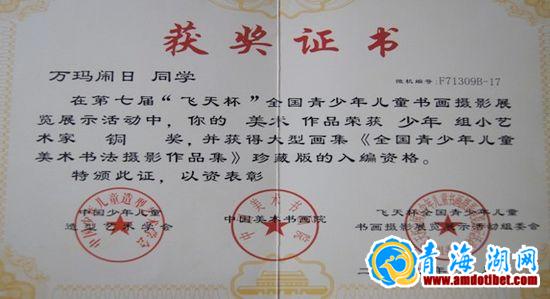 获奖证书
万玛闹日 同学
微机编号:F71309B-17
在第七届“飞天杯”全国青少年儿童书画摄影展
览展示活动中,你的 美术 作品荣获 少年 组小艺
术家 铜 奖,并获得大型画集《全国青少年儿童
美术书法摄影作品集》珍藏版的入编资格。
特颁此证,以资表彰
中国少年儿童
造型艺术学会
中国美术书画院
飞天杯全国青少年儿童
书画摄影展览展示活动组委会
青海湖网
www.amdotibet.com